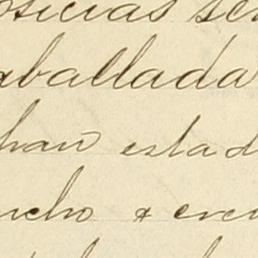 oticias se
aballada
han estad
ncho & en